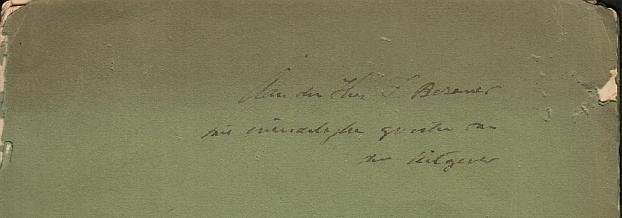 Aan den Heer F. Bezemer
met vriendelijke groeten van
den Uitgever